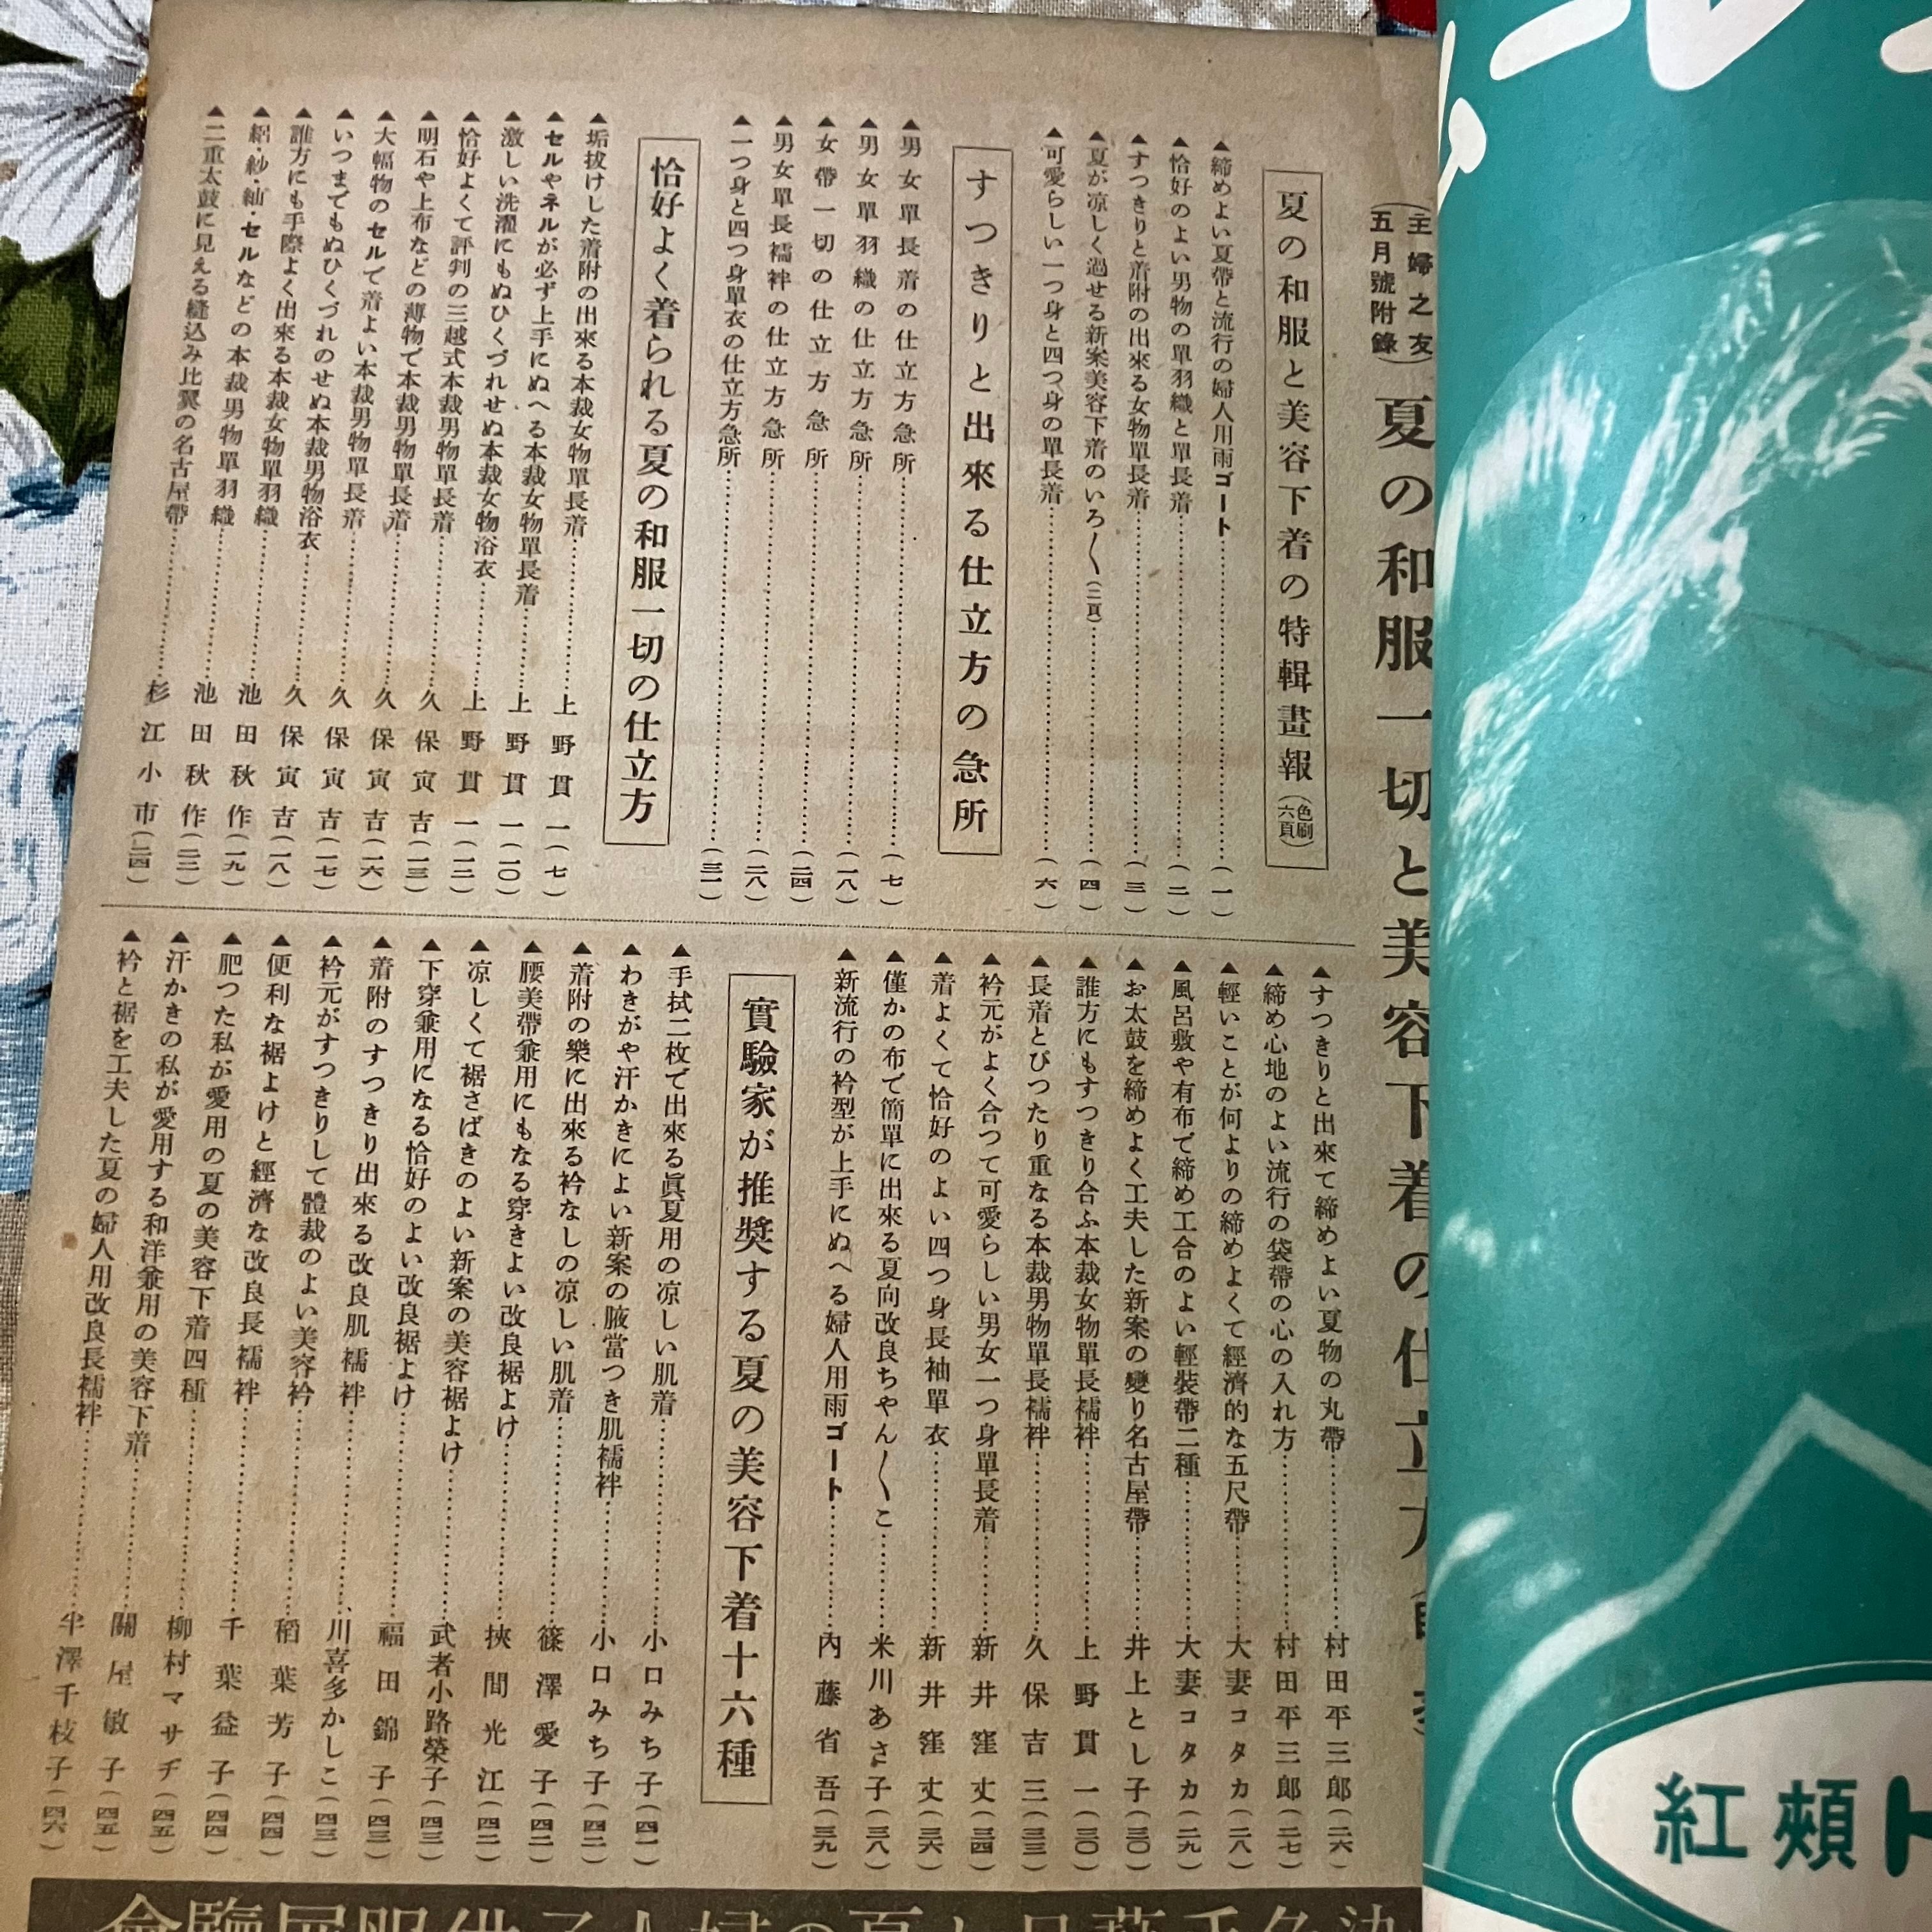 (主婦之友
五月號附錄)
夏の和服一切と美容下着の仕立方
夏の和服と美容下着の特輯畫報(色刷六頁)
▲締めよい夏帶と流行の婦人用雨ゴート……(一)
▲恰好のよい男物の單羽織と單長着……(二)
▲すつきりと着附の出來る女物單長着……(三)
▲夏が凉しく過せる新案美容下着のいろ〳〵(二頁)……(四)
▲可愛らしい一つ身と四つ身の單長着……(六)
すつきりと出來る仕立方の急所
▲男女單長着の仕立方急所……(七)
▲男女單羽織の仕立方急所……(一八)
▲女帶一切の仕立方急所……(二四)
▲男女單長襦袢の仕立方急所……(二八)
▲一つ身と四つ身單衣の仕立方急所……(三一)
恰好よく着られる夏の和服一切の仕立方
▲垢拔けした着附の出來る本裁女物單長着……上野貫一(七)
▲セルやネルが必ず上手にぬへる本裁女物單長着……上野貫一(一〇)
▲激しい洗濯にもぬひくづれせぬ本裁女物浴衣……上野貫一(一二)
▲恰好よくて評判の三越式本裁男物單長着……久保寅吉(一三)
▲明石や上布などの薄物で本裁男物單長着……久保寅吉(一六)
▲大幅物のセルで着よい本裁男物單長着……久保寅吉(一七)
▲いつまでもぬひくづれのせぬ本裁男物浴衣……久保寅吉(一八)
▲誰方にも手際よく出來る本裁女物單羽織……池田秋作(一九)
▲絽・紗・紬・セルなどの本裁男物單羽織……池田秋作(二二)
▲二重太鼓に見える縫込み比翼の名古屋帶……杉江小市(二四)
▲すつきりと出來て締めよい夏物の丸帶……村田平三郎(二六)
▲締め心地のよい流行の袋帶の心の入れ方……村田平三郎(二七)
▲輕いことが何よりの締めよくて經濟的な五尺帶……大妻コタカ(二八)
▲風呂敷や有布で締め工合のよい輕裝帶二種……大妻コタカ(二九)
▲お太鼓を締めよく工夫した新案の變り名古屋帶……井上とし子(三〇)
▲誰方にもすつきり合ふ本裁女物單長襦袢……上野貫一(三〇)
▲長着とぴつたり重なる本裁男物單長襦袢……久保吉三(三三)
▲衿元がよく合つて可愛らしい男女一つ身單長着……新井窪丈(三四)
▲着よくて恰好のよい四つ身長袖單衣……新井窪丈(三六)
▲僅かの布で簡單に出來る夏向改良ちやん〳〵こ……米川あさ子(三八)
▲新流行の衿型が上手にぬへる婦人用雨ゴート……內藤省吾(三九)
實驗家が推奬する夏の美容下着十六種
▲手拭二枚で出來る眞夏用の凉しい肌着……小口みち子(四一)
▲わきがや汗かきによい新案の腋當つき肌襦袢……小口みち子(四二)
▲着附の樂に出來る衿なしの凉しい肌着……篠澤愛子(四二)
▲腰美帶兼用にもなる穿きよい改良裾よけ……挾間光江(四二)
▲凉しくて裾さばきのよい新案の美容裾よけ……武者小路榮子(四三)
▲下穿兼用になる恰好のよい改良裾よけ……福田錦子(四三)
▲着附のすつきり出來る改良肌襦袢……川喜多かしこ(四三)
▲衿元がすつきりして體裁のよい美容衿……稻葉芳子(四四)
▲便利な裾よけと經濟な改良長襦袢……千葉益子(四四)
▲肥つた私が愛用の夏の美容下着四種……柳村マサヂ(四五)
▲汗かきの私が愛用する和洋兼用の美容下着……關屋敏子(四五)
▲衿と裾を工夫した夏の婦人用改良長襦袢……半澤千枝子(四六)
紅頰